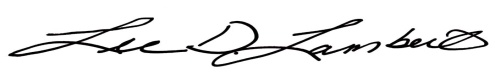 Lee D. Lambert